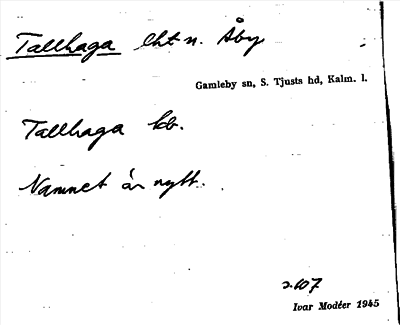 Tallhaga lht n. Åby
Gamleby sn, S. Tjusts hd, Kalm. l.
Tallhaga kb.
Namnet är nytt.
s. 107
Ivar Modéer 1945